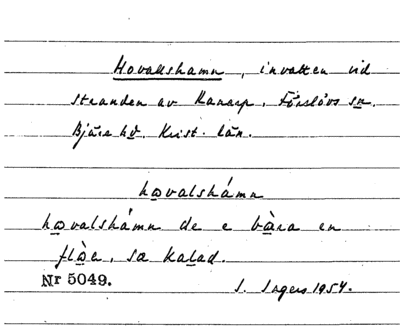 Hovallshamn, invatten vid
stranden av Kanarp, Förslövs sn.
Bjäre hd. Krist. län.
hɷvalshámn
hɷvalshámn de e bàra en
flàe, sɑ kalad.
Nr 5049. S. Ingers 1954.